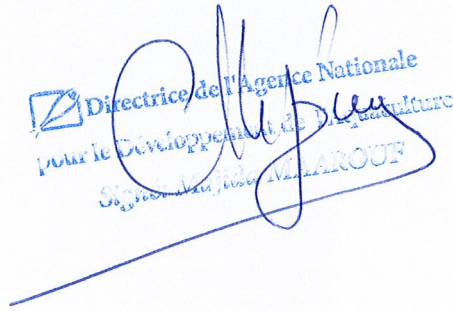 Directrice de l'Agence Nationale
pour le Développement de l'Aquaculture
Signé: Majida MAAROUF